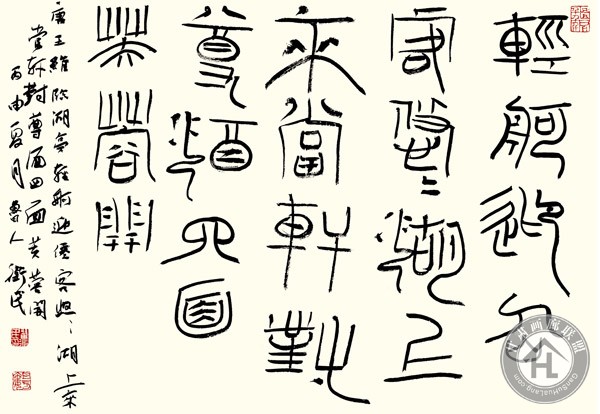 輕舸迎仙
客悠〻湖上
來當軒對
尊酒四面
芙蓉開
唐王維臨湖亭輕舸迎僊客悠〻湖上來
當軒對尊酒四面芙蓉開
丙申夏月魯人衛民
画廊联盟
GanRuHuaLang.com